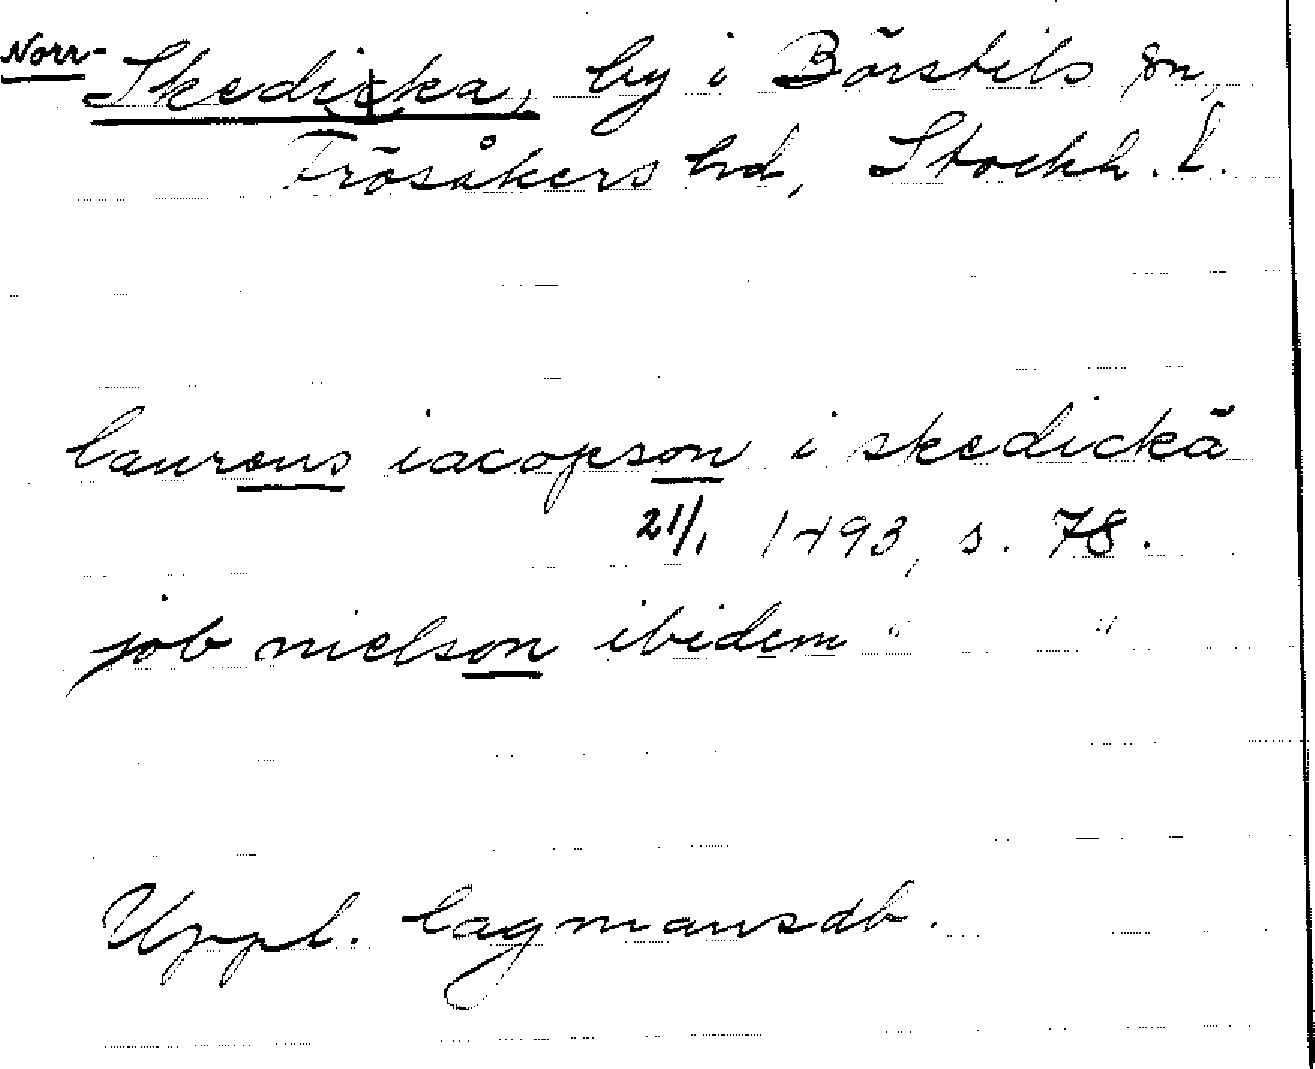 Norr-Skedicka, by i Börstils sn,
Frösåkers hd, Stockh. l.
laurens iacopson i skedickä
21/1 1493, s. 78.
job nielson ibidem " "
Uppl. lagmansdb.